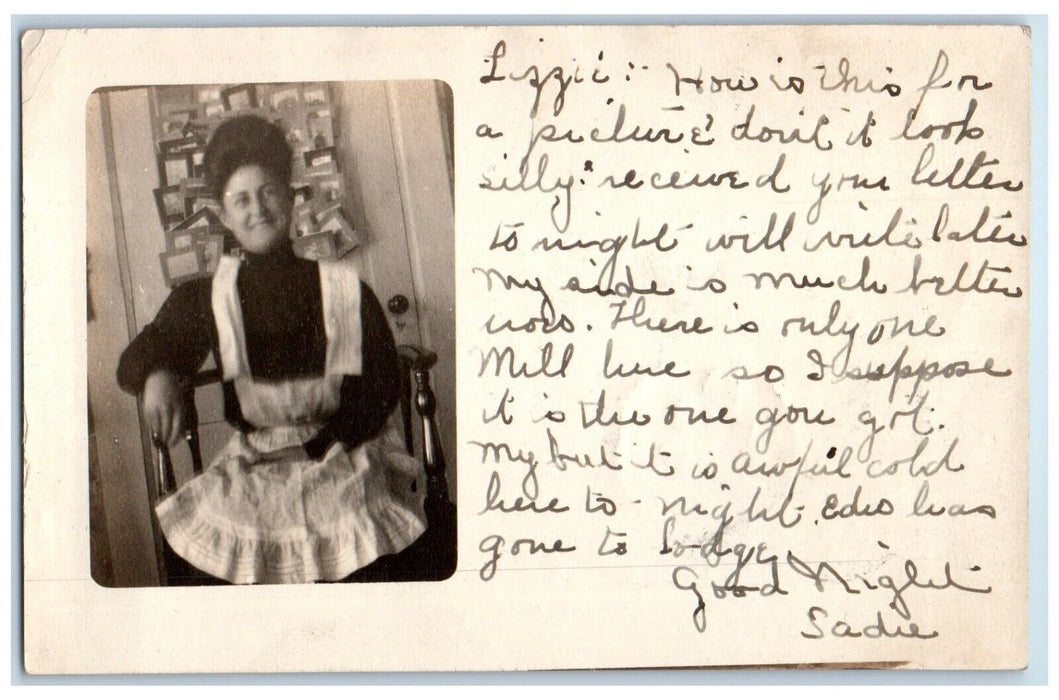 Lizzie:- How is this for
a picture? don't it look
silly? received your letter
to night will write later
My side is much better
now. There is only one
Mill here so I suppose
it is the one you got.
My but it is awful cold
here to-night. Edw has
gone to Lodge,
Good Night
Sadie